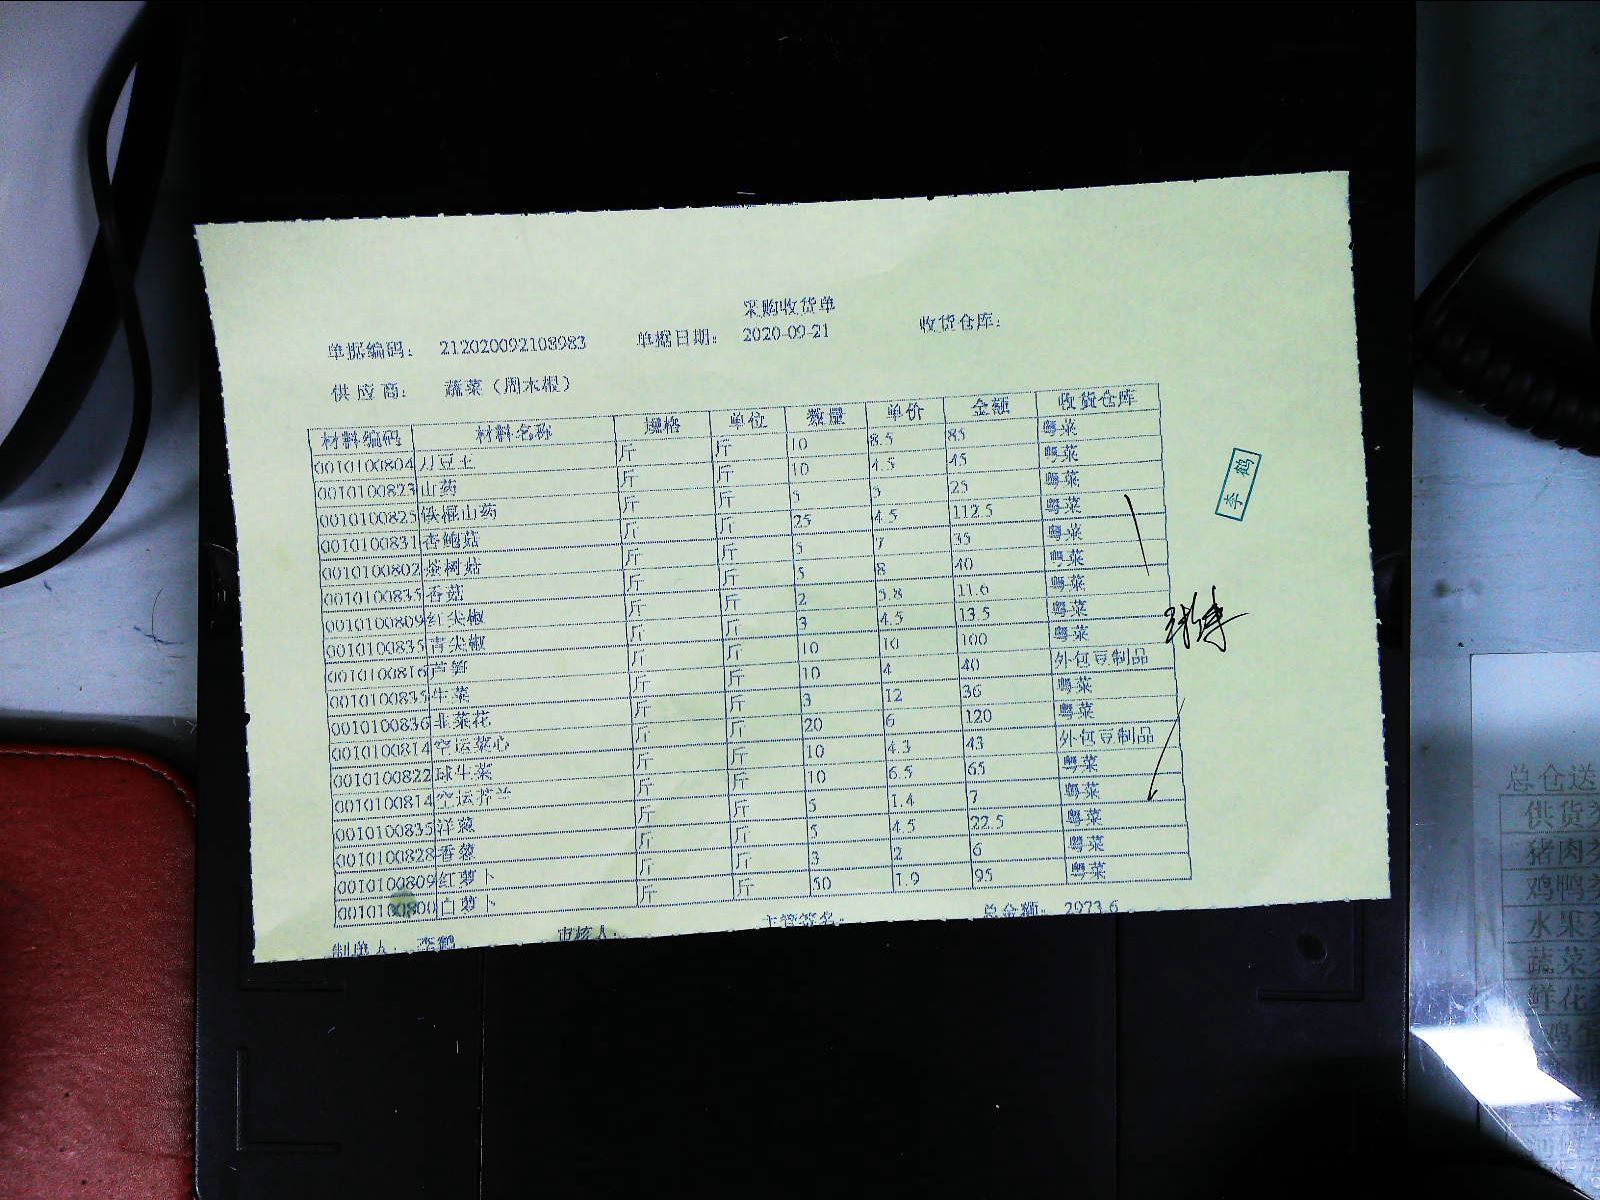 采购收货单
单据编码： 212020092108983 单据日期： 2020-09-21 收货仓库：
供 应 商： 蔬菜（周水根）
材料编码 材料名称 规格 单位 数量 单价 金额 收货仓库
0010100804 刀豆王 斤 斤 10 8.5 85 粤菜
0010100823 山药 斤 斤 10 4.5 45 粤菜
0010100825 铁棍山药 斤 斤 5 5 25 粤菜
0010100831 杏鲍菇 斤 斤 25 4.5 112.5 粤菜
0010100802 茶树菇 斤 斤 5 7 35 粤菜
0010100835 香菇 斤 斤 5 8 40 粤菜
0010100809 红尖椒 斤 斤 2 5.8 11.6 粤菜
0010100835 青尖椒 斤 斤 3 4.5 13.5 粤菜
0010100816 芦笋 斤 斤 10 10 100 粤菜
0010100835 生菜 斤 斤 10 4 40 外包豆制品
0010100836 韭菜花 斤 斤 3 12 36 粤菜
0010100814 空运菜心 斤 斤 20 6 120 粤菜
0010100822 球生菜 斤 斤 10 4.3 43 外包豆制品
0010100814 空运芥兰 斤 斤 10 6.5 65 粤菜
0010100835 洋葱 斤 斤 5 1.4 7 粤菜
0010100828 香葱 斤 斤 5 4.5 22.5 粤菜
0010100809 红萝卜 斤 斤 3 2 6 粤菜
0010100800 白萝卜 斤 斤 50 1.9 95 粤菜
制单人： 李鹤 审核人： 主管签名： 总金额： 2973.6
李鹤
总仓送
供货
猪肉
鸡鸭
水果
蔬菜
鲜花
鸡蛋